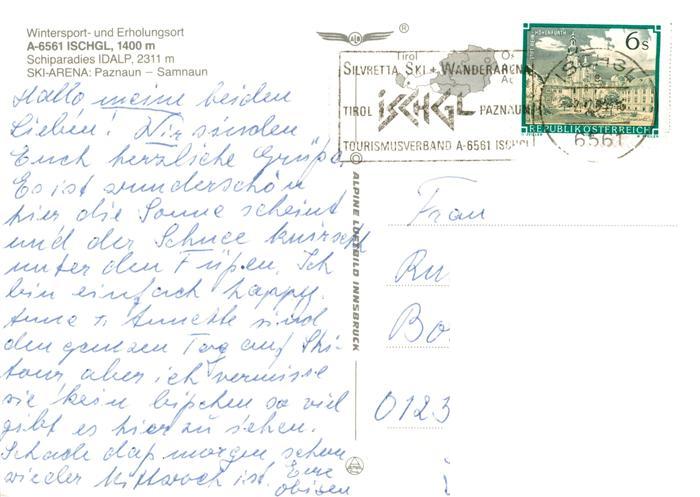 Wintersport- und Erholungsort
A-6561 ISCHGL, 1400 m
Schiparadies IDALP, 2311 m
SKI-ARENA: Paznaun – Samnaun
Hallo meine beiden
Lieben! Wir senden
Euch herzliche Grüße
Es ist wunderschön
hier die Sonne scheint
und der Schnee knirscht
unter den Füßen. Ich
bin einfach happy.
Anna u. Annette sind
den ganzen Tag auf Ski-
tour aber ich vermisse
sie kein bißchen so viel
gibt es hier zu sehen.
Schade daß morgen schon
wieder Mittwoch ist. Eure
© ALPINE LUFTBILD INNSBRUCK
®
Tirol
SILVRETTA SKI + WANDERAREN
TIROL ISCHGL PAZNAUN
TOURISMUSVERBAND A-6561 ISCHGL
6 s
REPUBLIK ÖSTERREICH
6561
Frau
Ru
Bo
0123